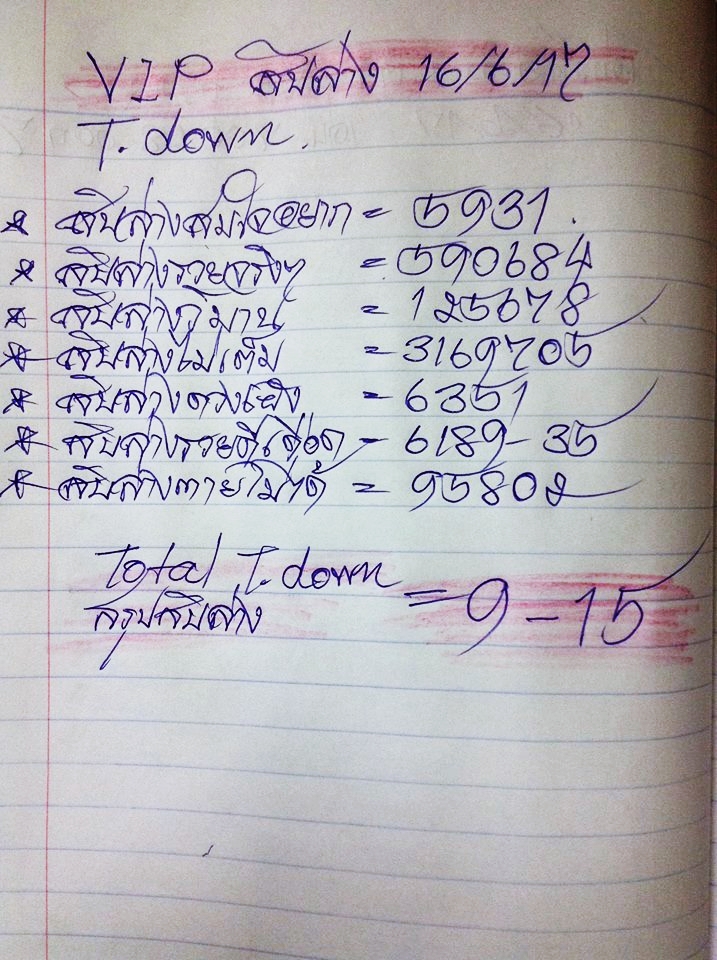 VIP สิบล่าง 16/6/17
T. down.
* สิบล่างสมใจอยาก = 5931.
* สิบล่างรวยจริงๆ = 590684
* สิบล่างวิมาน = 125678
* สิบล่างไม่เต็ม = 3169705
* สิบล่างดวงเฮง = 6351
* สิบล่างรวยดีเดือด = 6189-35
* สิบล่างตายไม่ได้ = 95802
Total T. down
สรุปสิบล่าง = 9-15